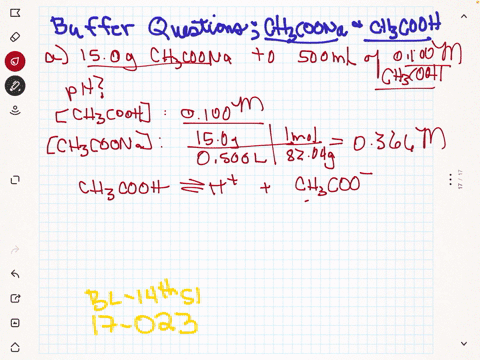 Buffer Questions; CH3COONa & CH3COOH
a) 15.0g CH3COONa to 500mL of 0.100M
CH3COOH
pH?
[CH3COOH] : 0.100M
[CH3COONa] : 15.0g | 1mol = 0.366M
0.500L | 82.04g
CH3COOH ⇌ H+ + CH3COO-
BL-14th SI
17-023
17 / 17